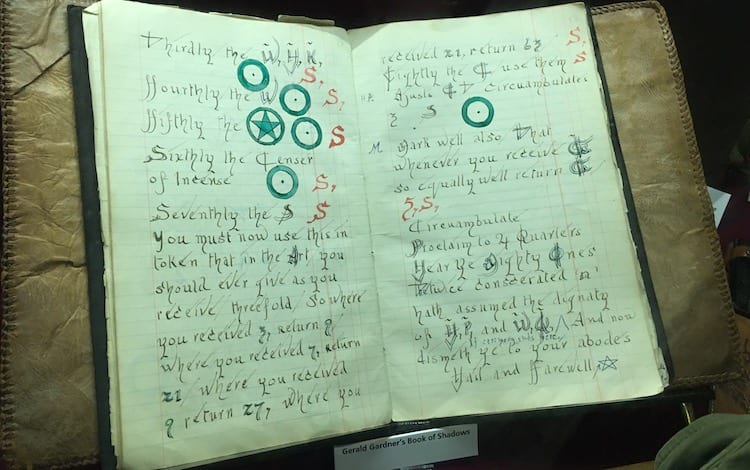 Thirdly the W, H, K,
S,
ffourthly the W S,
ffifthly the S
Sixthly the Censer
of Incense S,
Seventhly the S S
You must now use this in
token that in the Art you
should ever give as you
receive, threefold. So where
you received 3, return 9,
where you received 7, return
21, where you received
9 return 27, Where you
received 21, return 63 S,
Eightly the use them S
Ajusts Circuambulates
S
M. Mark well also that
whenever you receive
so equally well return
S,
Circuambulate
Proclaim to 4 Quarters
Hear Ye Mighty Ones
Twice conscerated
hath assumed the dignaty
of H, P, and W, Q, And now
dismeth ye to your abodes
Hail and ffarewell
Gerald Gardner's Book of Shadows